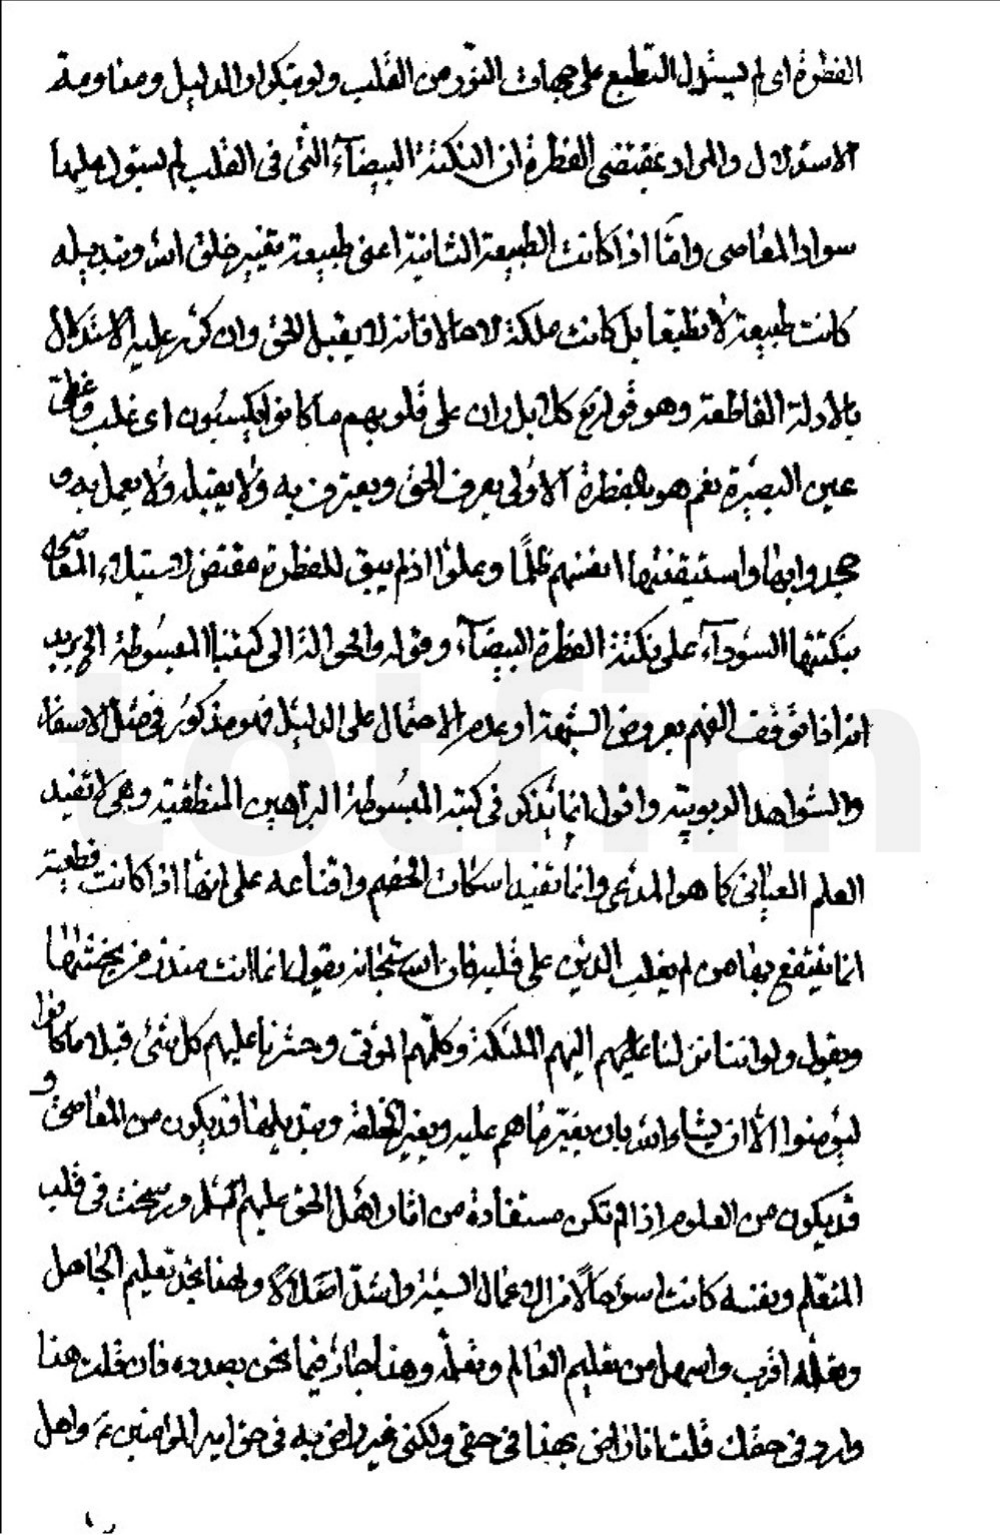 الفطرة اى لم يستول التطبع على جهات النور من القلب ولو بتكرار الدليل ومداومة
الاستدلال والمراد بمقتضى الفطرة ان النكتة البيضاء التى فى القلب لم يستول عليها
سواد المعاصى وامّا اذا كانت الطبيعة الثانية اعنى طبيعة تغيير خلق الله وتبديله
كانت طبيعة لا تطبّعا بل كانت ملكة لا حالا فانه لا يقبل الحق وان كرر عليه الاستدلال
بالادلة القاطعة وهو قوله تع كلا بل ران على قلوبهم ما كانوا يكسبون اى غلب وغطّى
عين البصيرة نعم هو بالفطرة الاولى يعرف الحق ويعترف به ولا يقبله ولا يعمل به و
جحدوا بها واستيقنتها انفسهم ظلمًا وعلوّا اذ لم يبق للفطرة مقتض لاستيلاء المعاصى
بنكتتها السوداء على نكتة الفطرة البيضاء وقوله والحوالة الى كتبنا المبسوطة الخ يريد
انه اذا توقف الفهم بعروض الشبهة او عدم الاحتمال على الدليل فهو مذكور فى مثل الاسفار
والشواهد الربوبيّة واقول انما يذكر فى كتبه المبسوطة البراهين المنطقية وهى لا تفيد
العلم العيانى كما هو المدعى وانما تفيد اسكات الخصم واقناعه على انها اذا كانت قطعية
انما ينتفع بها من لم يغلب الرين على قلبه فان الله سبحانه يقول انما انت منذر من يخشيها
ويقول ولو اننا نزلنا عليهم اليهم الملئكة وكلّمهم الموتى وحشرنا عليهم كل شئ قبلا ما كانوا
ليؤمنوا الّا ان يشاء الله بان يغيّر ما هم عليه وتغيير الخلقة وتبديلها قد يكون من المعاصى و
قد يكون من العلوم اذا لم تكن مستفادة من اثار اهل الحق عليهم السلم ورسخت فى قلب
المتعلم ونفسه كانت اسوء حالا من الاعمال السيئة واشدّ اهلاكا ولهذا تجد تعليم الجاهل
وتعلمه اقرب واسهل من تعليم العالم وتعلّمه وهذا جار فيما نحن بصدده فان قلت هذا
وارد فى حقك قلت انا راض بهذا فى حقى ولكنى غير راض به فى حق امير المؤمنين ع واهل